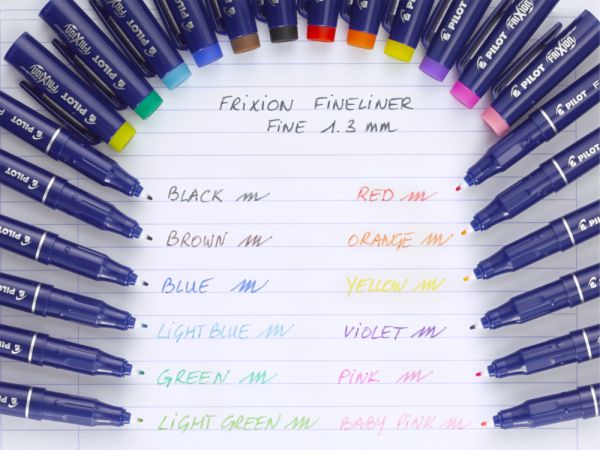 FRIXION FINELINER
FINE 1.3 mm
BLACK
RED
BROWN
ORANGE
BLUE
YELLOW
LIGHT BLUE
VIOLET
GREEN
PINK
LIGHT GREEN
BABY PINK
PILOT FRIXION
PILOT FRIXION
PILOT
PILOT
PILOT
PILOT
PILOT FRIXION
PILOT FRIXION
PILOT
PILOT
PILOT
PILOT
PILOT
PILOT
PILOT
PILOT
PILOT
PILOT